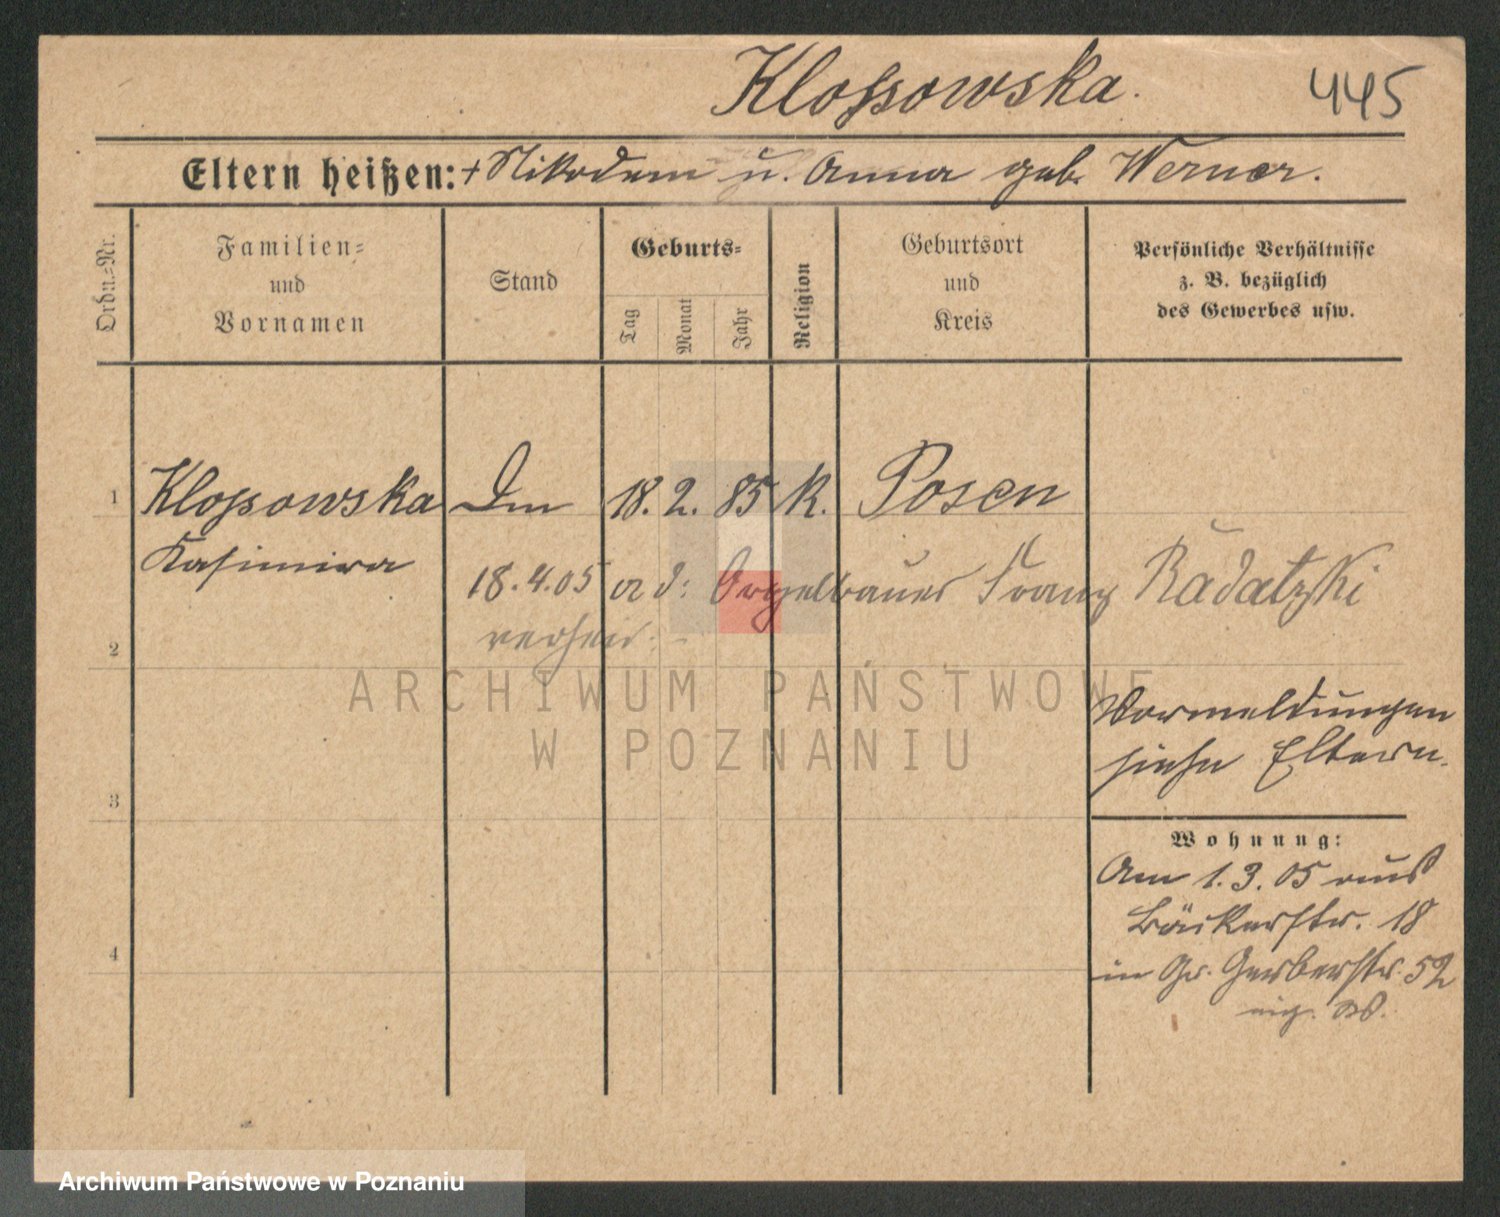 Klossowska.
445
Eltern heißen: + Nikodem u. Anna geb. Werner.
Ordn.-Nr.
Familien-
und
Vornamen
Stand
Geburts-
Tag
Monat
Jahr
Religion
Geburtsort
und
Kreis
Persönliche Verhältnisse
z. B. bezüglich
des Gewerbes usw.
1
Klossowska
18. 2. 85
K.
Posen
Kasimira
18.4.05 a d: Orgelbauer Franz Radatzki
verheir.
2
ARCHIWUM PAŃSTWOWE
W POZNANIU
Vormeldungen
siehe Eltern.
3
Wohnung:
Am 1.3.05 aus
Bäckerstr. 18
in Gr. Gerberstr. 52
4
Archiwum Państwowe w Poznaniu